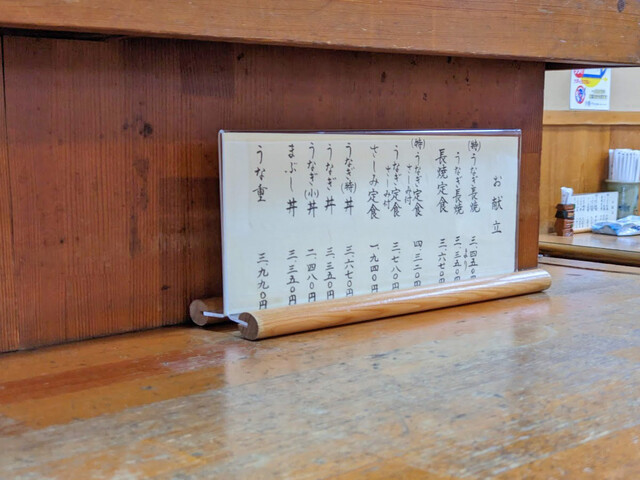 お献立
(特)うなぎ長焼 三、四五〇円
うなぎ長焼 三、三五〇円
長焼定食 三、六七〇円
(特)うなぎ定食 さしみ付 四、三二〇円
うなぎ定食 さしみ付 三、七八〇円
さしみ定食 一、九四〇円
うなぎ(特)丼 三、六七〇円
うなぎ丼 三、三五〇円
うなぎ(小)丼 二、四八〇円
まぶし丼 三、三五〇円
うな重 三、九九〇円